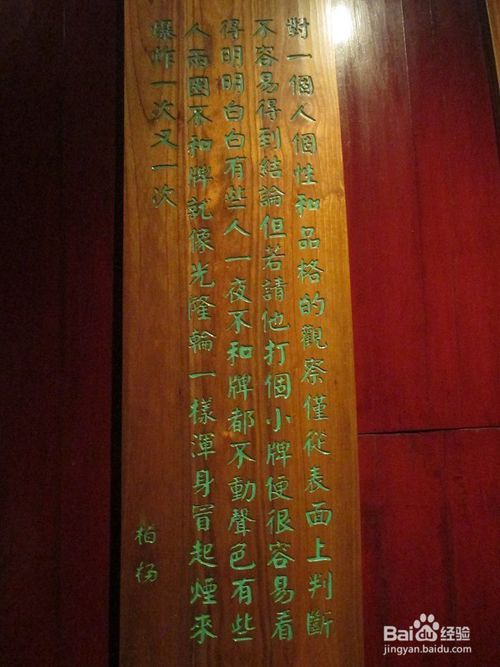 對一個人個性和品格的觀察僅從表面上判斷
不容易得到結論但若請他打個小牌便很容易看
得明明白白有些人一夜不和牌都不動聲色有些
人兩圈不和牌就像光隆輪一樣渾身冒起煙來
爆炸一次又一次
柏楊
Baidu经验
jingyan.baidu.com